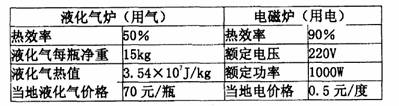 液化气炉（用气） 电磁炉（用电）
热效率 50% 热效率 90%
液化气每瓶净重 15kg 额定电压 220V
液化气热值 3.54×10⁷J/kg 额定功率 1000W
当地液化气价格 70元/瓶 当地电价格 0.5元/度